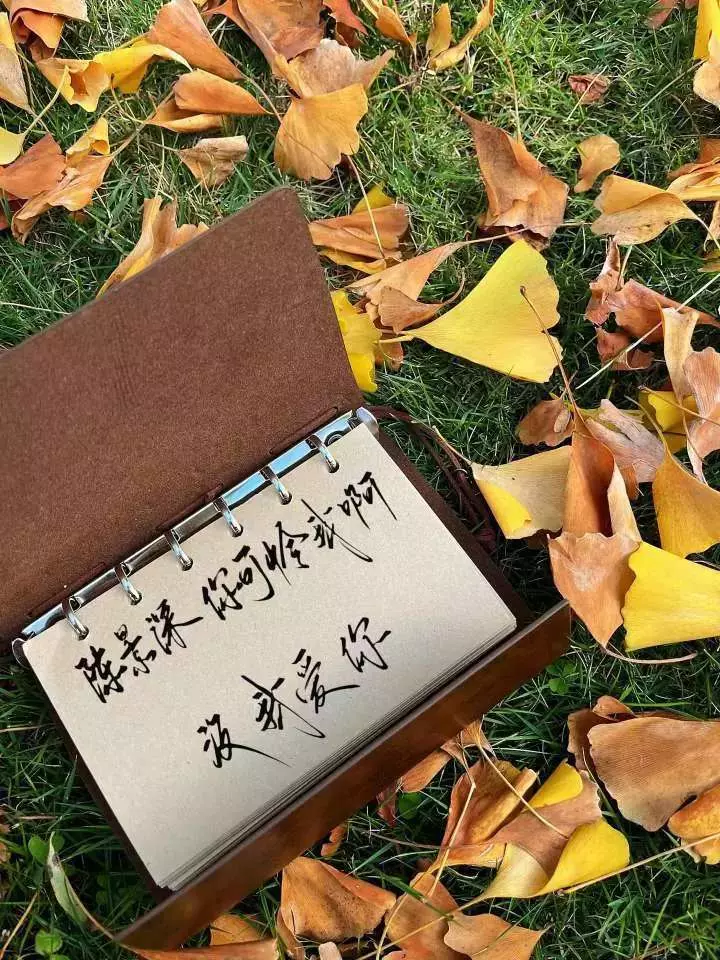 陈景深你可怜我啊
没我爱你